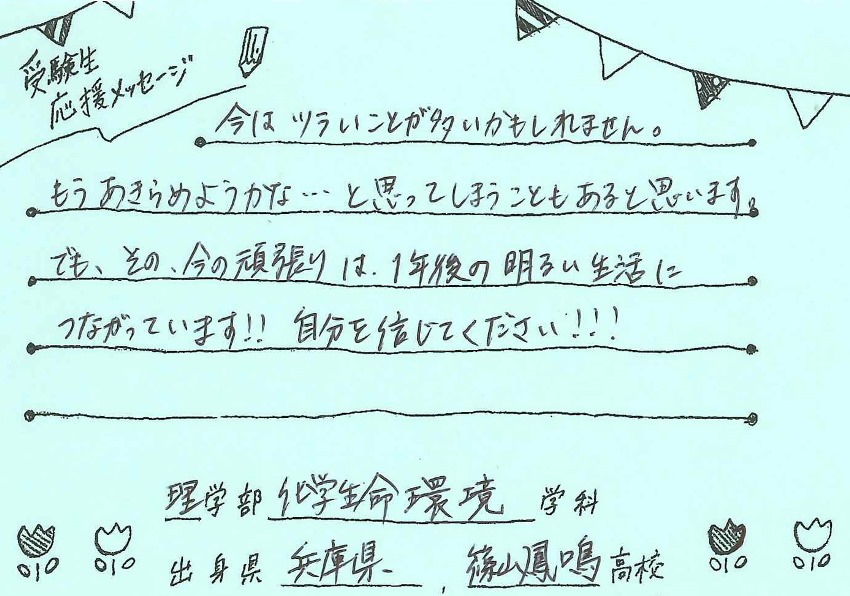 受験生
応援メッセージ
今はツラいことが多いかもしれません。
もうあきらめようかな…と思ってしまうこともあると思います。
でも、その、今の頑張りは、1年後の明るい生活に
つながっています!! 自分を信じてください!!!
理学部 化学生命環境 学科
出身県 兵庫県、篠山鳳鳴高校